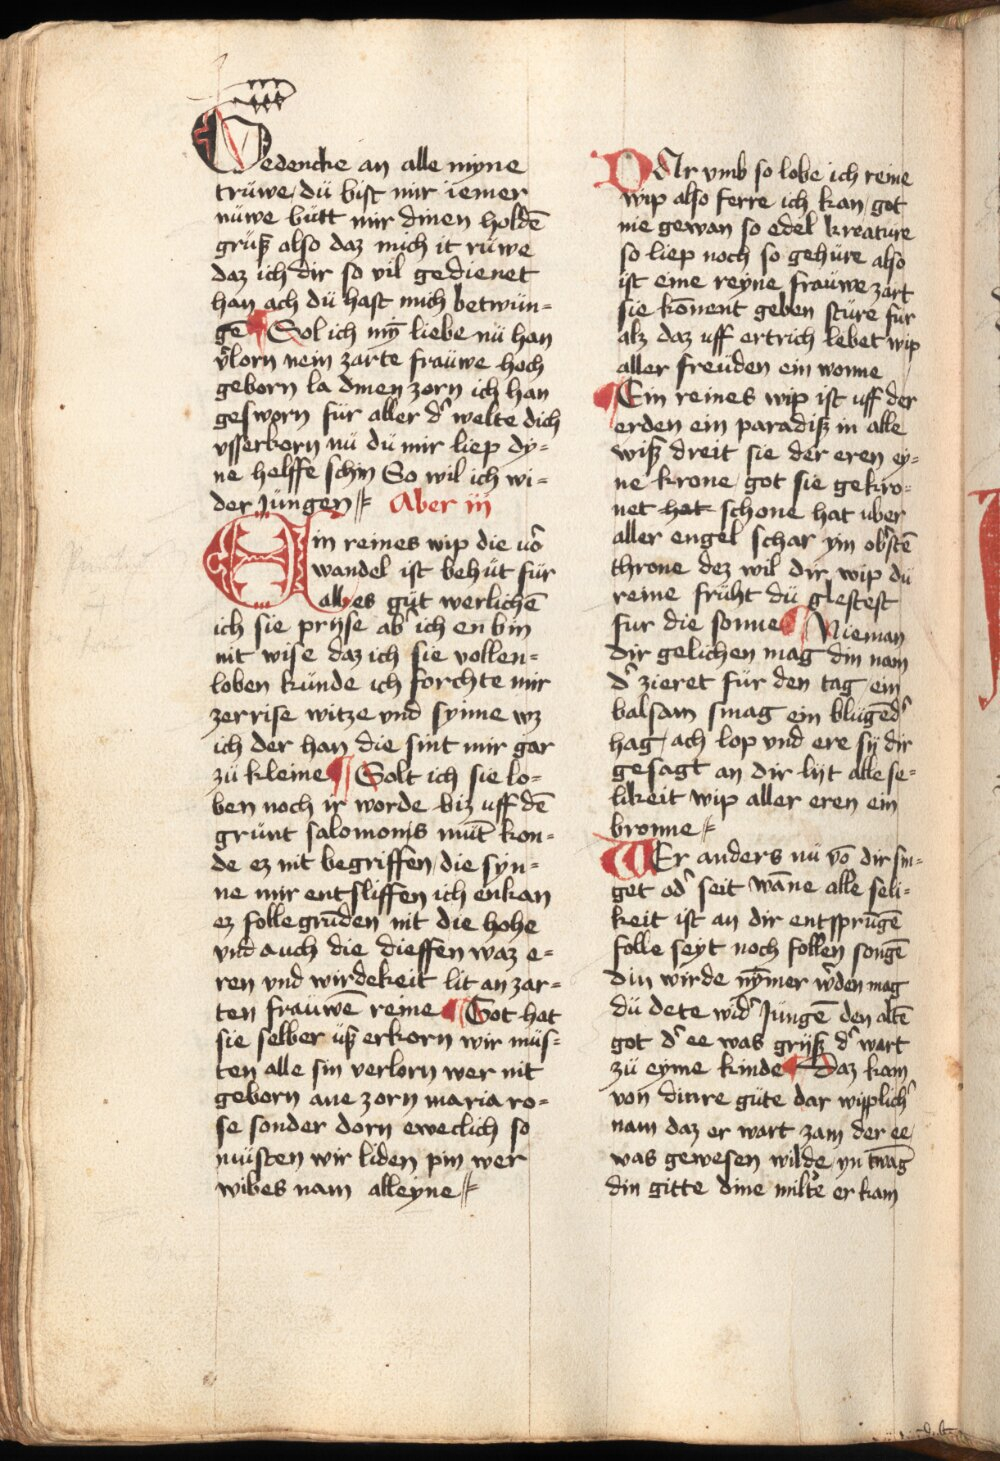 Gedencke an alle myne
trüwe / dü bist mir iemer
nüwe bütt mir dinen holdē
grüß also daz mich it rüwe
daz ich dir so vil gedienet
han ach dü hast mich betwün=
gē Sol ich my̅ liebe nü han
v̾lorn nein zarte fraüwe hoch
geborn la dinen zorn ich han
gesworn für aller d̾ welte dich
vsserkorn nü dü mir liep dy=
ne helffe schin So wil ich wi=
der Jüngen Aber iii
Ein reines wip die vō
wandel ist behüt für
alles güt werlichē
ich sie prijse ab̾ ich en bin
nit wise daz ich sie vollen=
loben künde ich forchte mir
zerrise witze vnd synne wz
ich der han die sint mir gar
zü kleine Solt ich sie lo=
ben noch ir worde biz uff dē
grünt salomonis müt kon=
de ez nit begriffen / die syn=
ne mir entsliffen ich enkan
ez follegrūden nit die hohe
vnd auch die dieffen waz e=
ren vnd wirdekeit lit an zar=
ten fraüwē reine Got hat
sie selber üß erkorn wir müs=
ten alle sin verlorn wer nit
geborn ane zorn maria ro=
se sonder dorn eweclich so
müsten wir liden pin wer
wibes nam alleyne
DAr vmb so lobe ich reine
wip also ferre ich kan / got
nie gewan so edel kreature
so liep noch so gehüre also
ist eine reyne fraüwe zart
sie kōnent geben stüre für
alz daz uff ertrich lebet wip
aller freüden ein wonne
Ein reines wip ist uff der
erden ein paradiß in alle
wiß dreit sie der eren ey=
ne krone / got sie gekro=
net hat schone hat uber
aller engel schar ym ob̾stē
throne dez wil dir wip dü
reine früht dü glestest
fur die sonne Nieman
dir gelichen mag din nam
d̾ zieret für den tag / ein
balsam smag ein blügēd̾
hag / ach lop vnd ere sij dir
gesagt an dir lijt alle se=
likeit wip aller eren ein
bronne
WEr anders nü vō dir sin=
get od̾ seit wāne alle seli=
keit ist an dir entsprūgē
folle seyt noch follen songē
din wirde ny̅mer w̾den mag
dü dete wid̾ Jüngē den altē
got d̾ ee was grijß d̾ wart
zü eyme kinde Daz kam
von dinre güte dar wiplich̾
nam daz er wart zam der ee /
was gewesen wilde yn twāg
din gitte dine milt̾e er kam